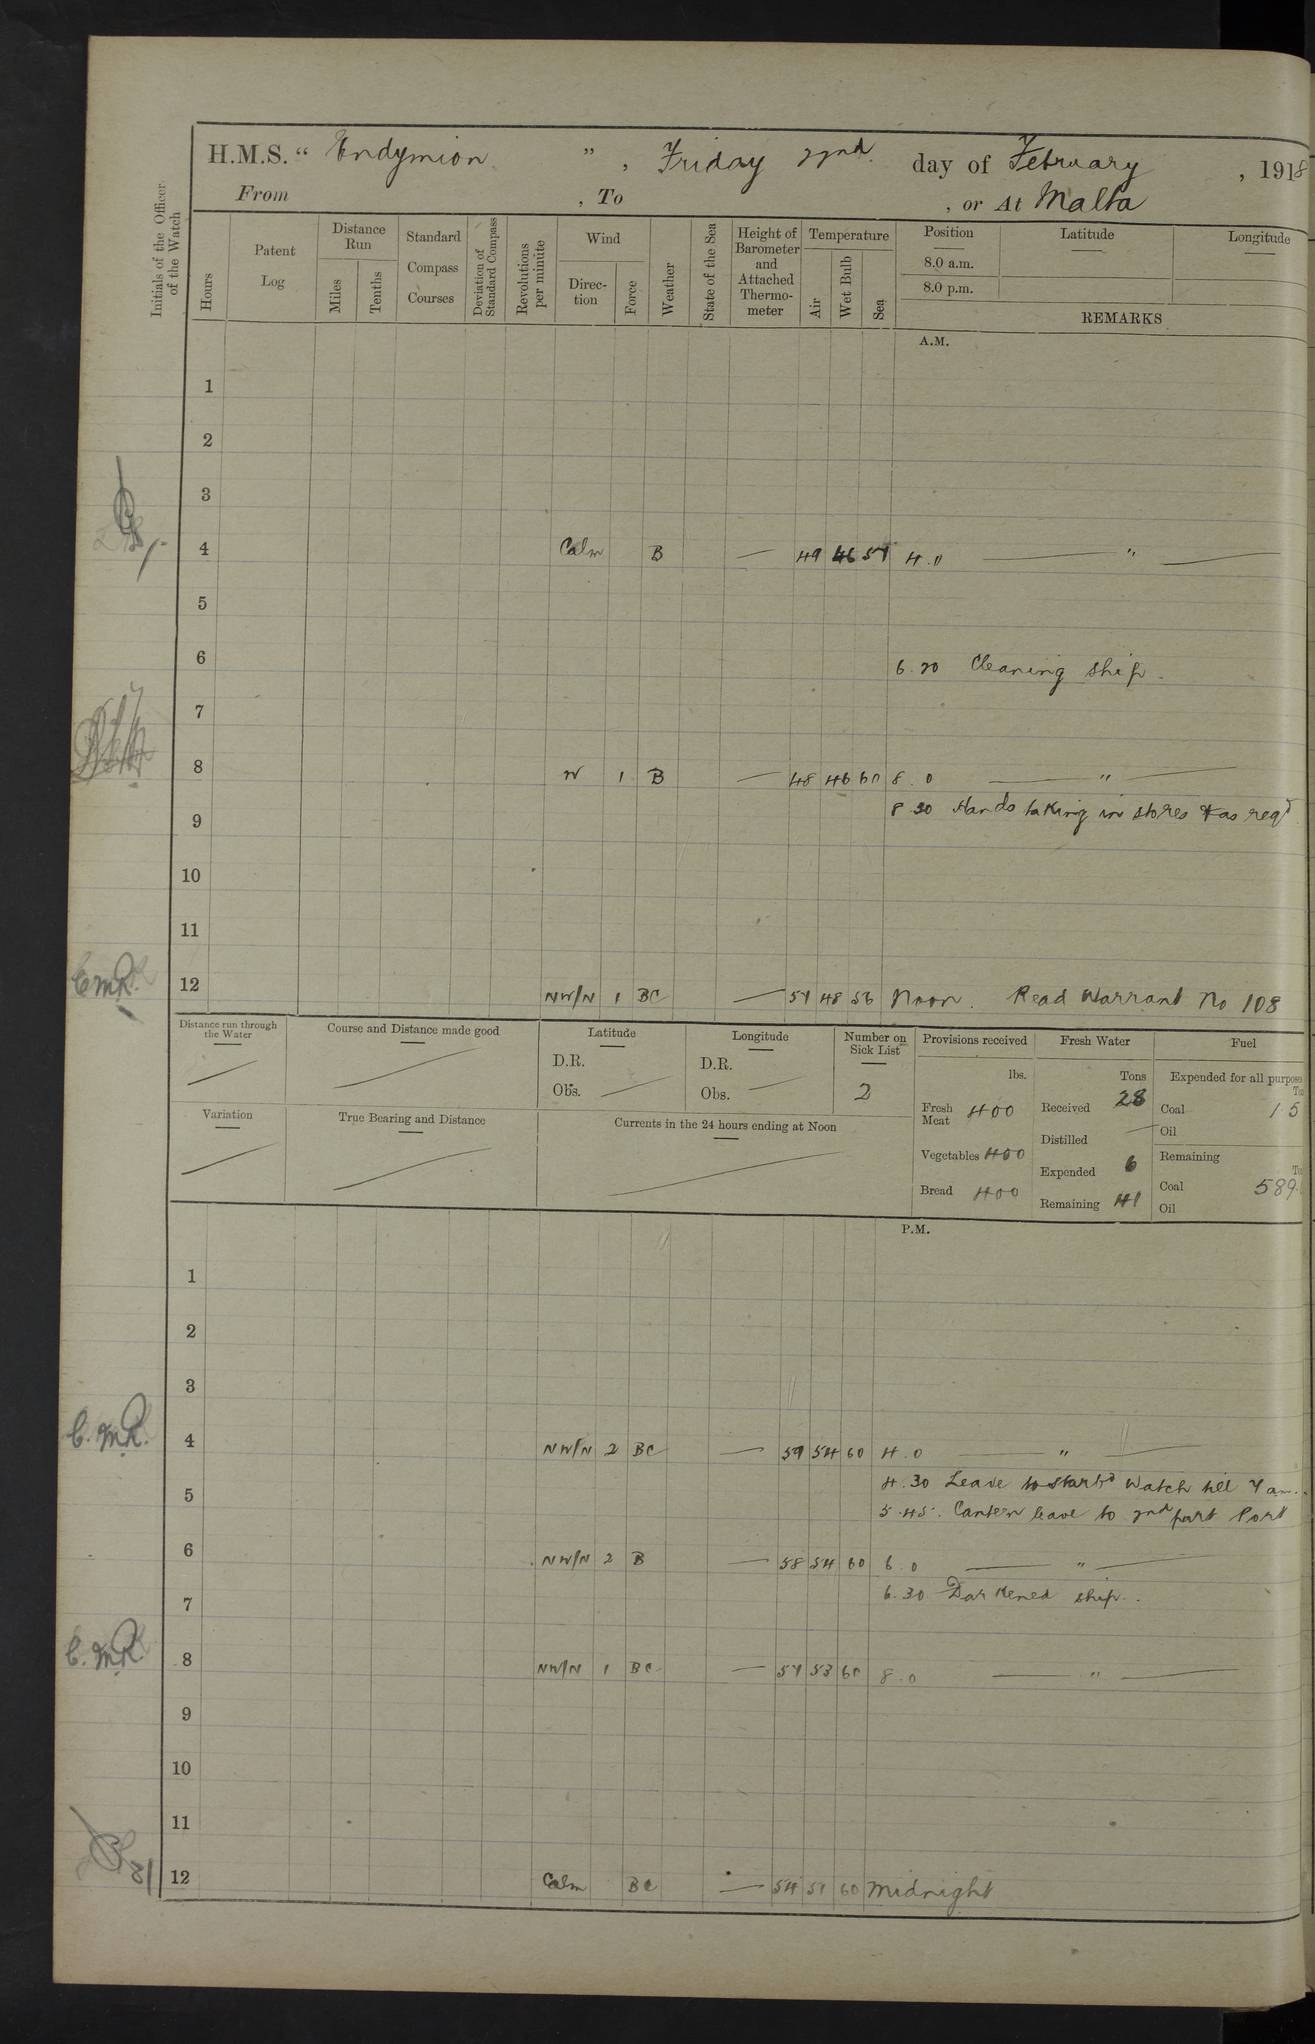 H.M.S. “ Endymion ” , Friday 22nd. day of February , 1918
From , To , or At Malta
Initials of the Officer of the Watch
Hours
Patent Log
Distance Run
Miles
Tenths
Standard Compass Courses
Deviation of Standard Compass
Revolutions per minute
Wind
Direction
Force
Weather
State of the Sea
Height of Barometer and Attached Thermometer
Temperature
Air
Wet Bulb
Sea
Position
Latitude
Longitude
8.0 a.m.
8.0 p.m.
REMARKS
A.M.
1
2
3
4 Calm B — 49 46 57 4.0 — " —
5
6
6.20 Cleaning ship.
7
8 W 1 B — 48 46 60 8.0 — " —
8.30 Hands taking in stores & as reqd
9
10
11
C.M.R. 12 NW/N 1 BC — 57 48 56 Noon. Read Warrant No 108
Distance run through the Water
Course and Distance made good
Latitude
D.R.
Obs. —
Longitude
D.R.
Obs. —
Number on Sick List
2
Variation
True Bearing and Distance
Currents in the 24 hours ending at Noon
Provisions received
lbs.
Fresh Meat 400
Vegetables 400
Bread 400
Fresh Water
Tons
Received 28
Distilled —
Expended 6
Remaining 41
Fuel
Expended for all purpose
Coal 15
Oil
Remaining
Coal 589
Oil
P.M.
1
2
3
C.M.R. 4 NW/N 2 BC — 59 54 60 4.0 — " —
4.30 Leave to starbd Watch till 7 am.
5 5.45. Canteen leave to 2nd part Port
6 NW/N 2 B — 58 54 60 6.0 — " —
6.30 Darkened ship.
7
C.M.R. 8 NW/N 1 BC — 57 53 60 8.0 — " —
9
10
11
12 Calm BC — 54 51 60 Midnight